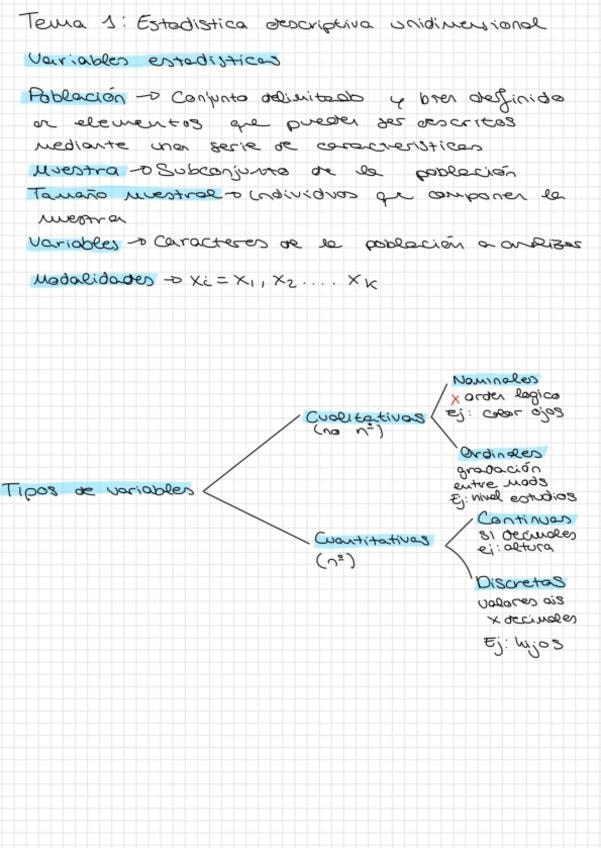 Tema 1: Estadistica descriptiva unidimensional
Variables estadisticas
Población → Conjunto delimitado y bien definido
de elementos que pueden ser descritos
mediante una serie de caracteristicas
Muestra → Subconjunto de la población
Tamaño muestral → individuos que componen la
muestra
Variables → Caracteres de la población a analizar
Modalidades → xi = x1, x2 .... xK
Nominales
x orden logico
Ej: color ojos
Cualitativas
(no nº)
Ordinales
gradación
entre mods
Ej: nivel estudios
Tipos de variables
Continuas
si decimales
ej: altura
Cuantitativas
(nº)
Discretas
valores ais
x decimales
Ej: hijos